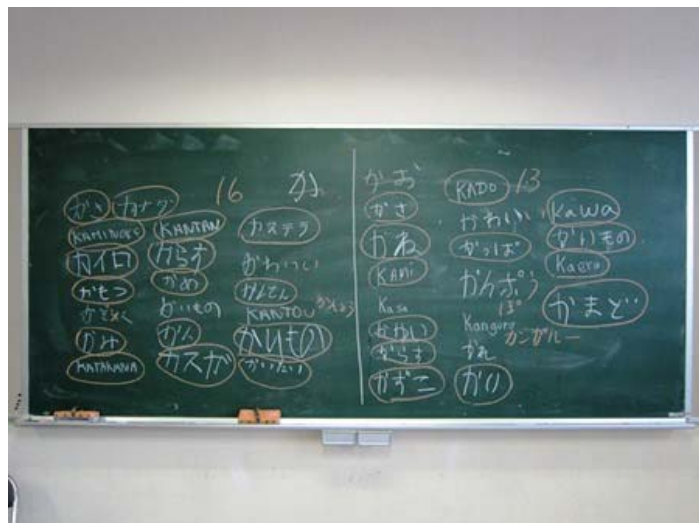 かさ カナダ 16 か
KAMINOKE KANTAN カステラ
カイロ からす かわいい
かもつ かめ かんてん
かぞく かいもの KANTOU かんとう
かみ かん かりもの
KATAKANA カスガ かいだい
かお KADO 13
かさ かわいい Kawa
かね かっぱ かいもの
KANI かんぽう Kaeru
Kasa かまど
かわい Kanguru カンガルー
がらす かれ
かずこ かい